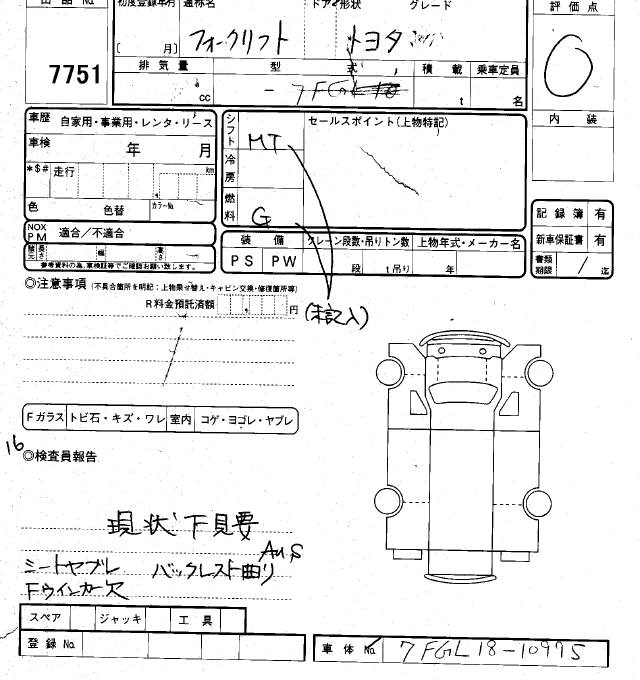 出品 No 初度登録年月 通称名 ドア 形状 グレード 評価点
7751
〔 月〕 フォークリフト トヨタ 0
排気量 型 式 積載 乗車定員
cc - 7FG t 名
車歴 自家用・事業用・レンタ・リース シフト MT セールスポイント(上物特記) 内装
車検 年 月
*$# 走行 km 冷房
色 色替 カラーNo 燃料 G
記録簿 有
新車保証書 有
書類期限 / 迄
NOX PM 適合/不適合 装備 クレーン段数・吊りトン数 上物年式・メーカー名
諸元 長さ 幅 高さ PS PW 段 t吊り 年
参考資料の為、車検証等でご確認お願い致します。
◎注意事項 (不具合箇所を明記:上物乗せ替え・キャビン交換・修復箇所等)
R料金預託済額 円 (未記入)
Fガラス トビ石・キズ・ワレ 室内 コゲ・ヨゴレ・ヤブレ
16
◎検査員報告
現状下見要
AUS
シートヤブレ バックレスト曲り
Fウインカー欠
スペア ジャッキ 工具
登録 No 車体 No 7FGL18-10995